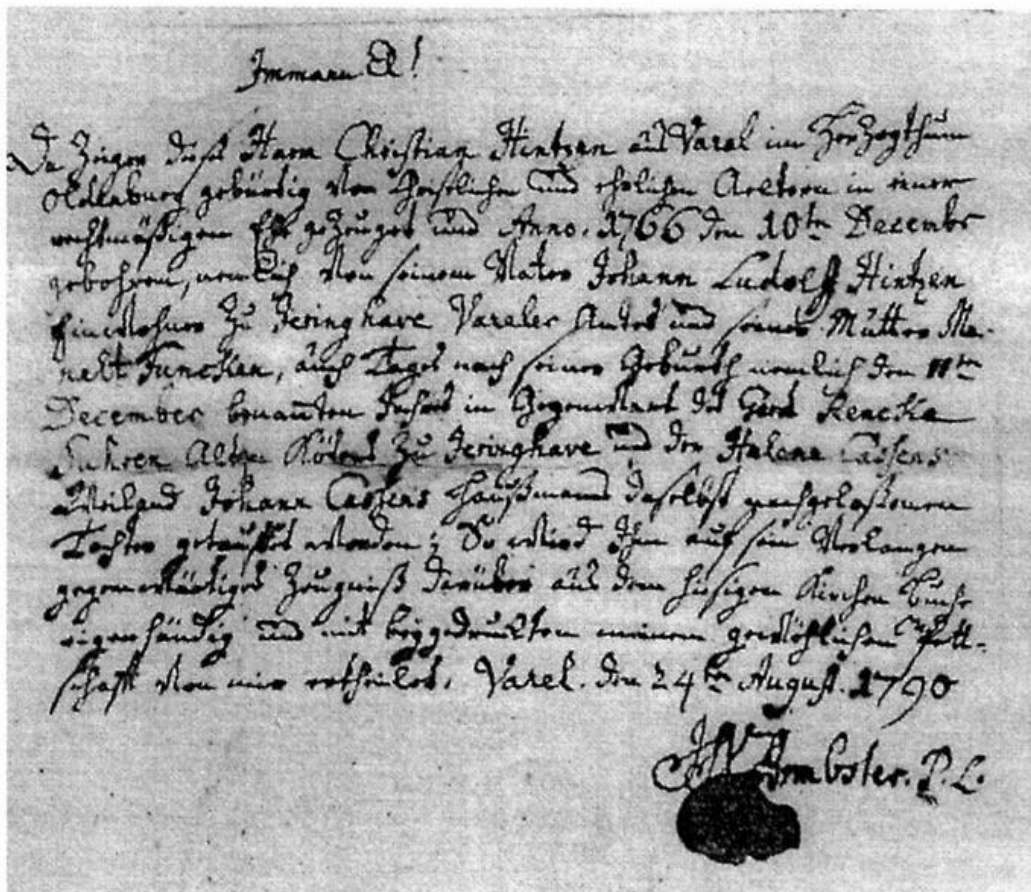 Immanu El!
Da Zeiger dieses Harm Christian Hintzen aus Varel im Herzogthum
Oldenburg gebürtig von Christlichen und ehrlichen Aeltern in einer
rechtmäßigen Ehe gezeuget und Anno. 1766 den 10ten Decembr
gebohren, nemlich von seinem Vater Johann Ludolff Hintzen
Einwohner zu Jeringhave Vareler Amtes und seiner Mutter Ma-
nelt Funcken, auch Tages nach seiner Geburth nemlich den 11ten
December benannten Jahres in Gegenwart des Gerd Rencke
Fuhren Alten Köters zu Jeringhave und der Helena Cassens
Weiland Johann Cassens Haußmanns daselbst nachgelaßenen
Tochter getauffet worden; So wird Ihm auf sein Verlangen
gegenwärtiges Zeugniß darüber aus dem hiesigen Kirchen Buche
eigenhändig und mit beygedrucktem meinem gewöhlichen Pett-
schafft von mir ertheilet. Varel. den 24ten August. 1790
Armbster. P. L.